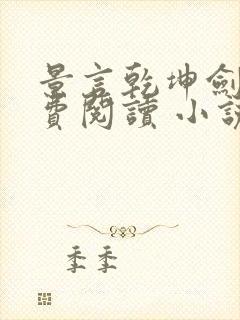 景言乾坤劍
費閱讀 小說
季季